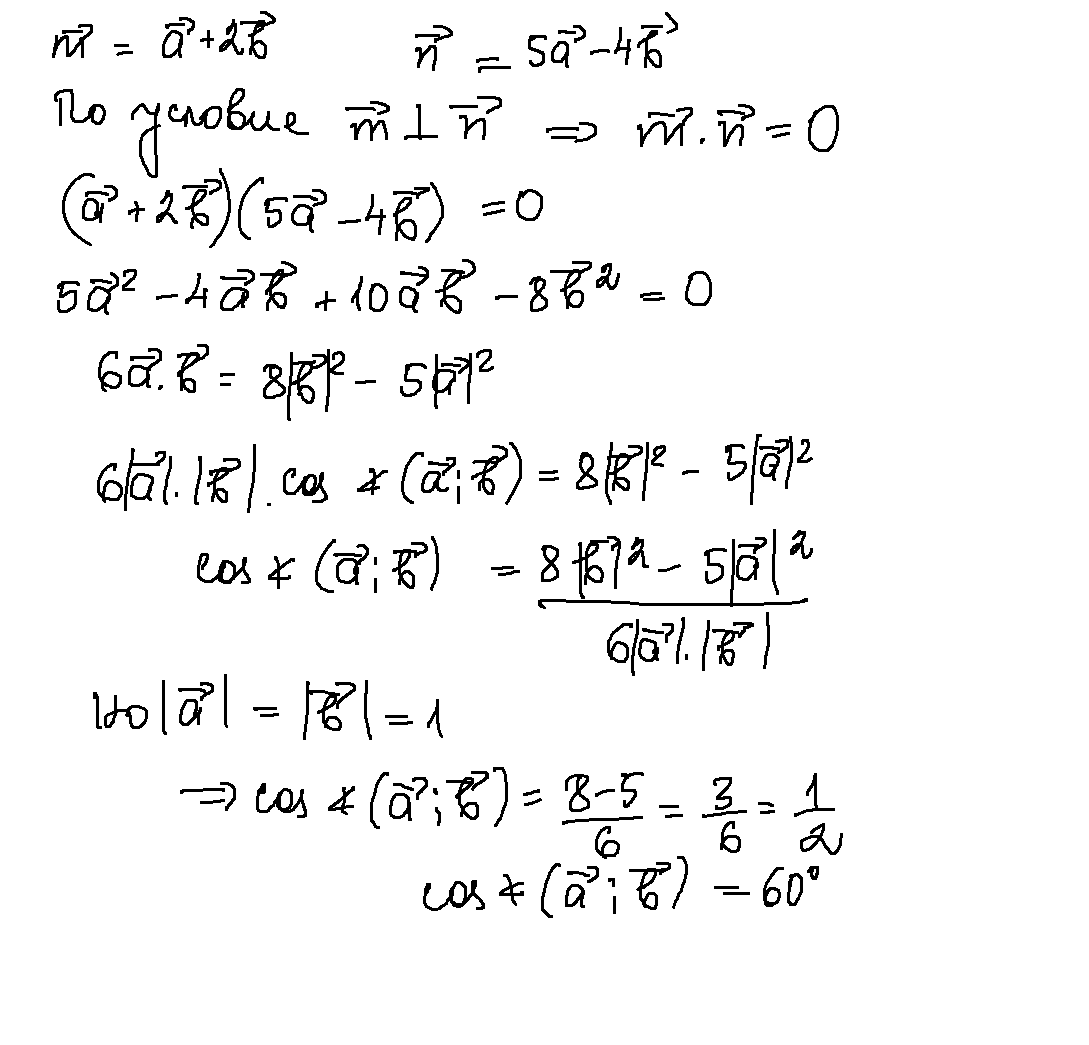 m⃗ = a⃗ + 2b⃗ n⃗ = 5a⃗ − 4b⃗
По условие m⃗ ⊥ n⃗ ⇒ m⃗ . n⃗ = 0
(a⃗ + 2b⃗)(5a⃗ − 4b⃗) = 0
5a⃗² − 4a⃗b⃗ + 10a⃗b⃗ − 8b⃗² = 0
6a⃗.b⃗ = 8|b⃗|² − 5|a⃗|²
6|a⃗|.|b⃗|.cos ∡(a⃗;b⃗) = 8|b⃗|² − 5|a⃗|²
cos ∡(a⃗;b⃗) = (8|b⃗|² − 5|a⃗|²)/(6|a⃗|.|b⃗|)
Но |a⃗| = |b⃗| = 1
⇒ cos ∡(a⃗;b⃗) = (8−5)/6 = 3/6 = 1/2
cos ∡(a⃗;b⃗) = 60°